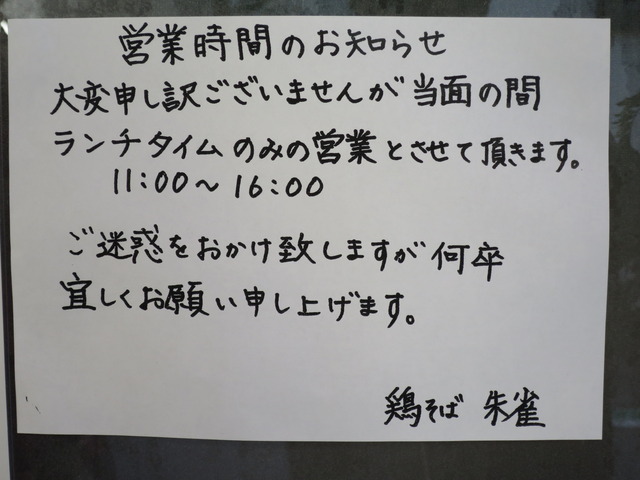 営業時間のお知らせ
大変申し訳ございませんが当面の間
ランチタイムのみの営業とさせて頂きます。
11:00〜16:00
ご迷惑をおかけ致しますが何卒
宜しくお願い申し上げます。
鶏そば 朱雀